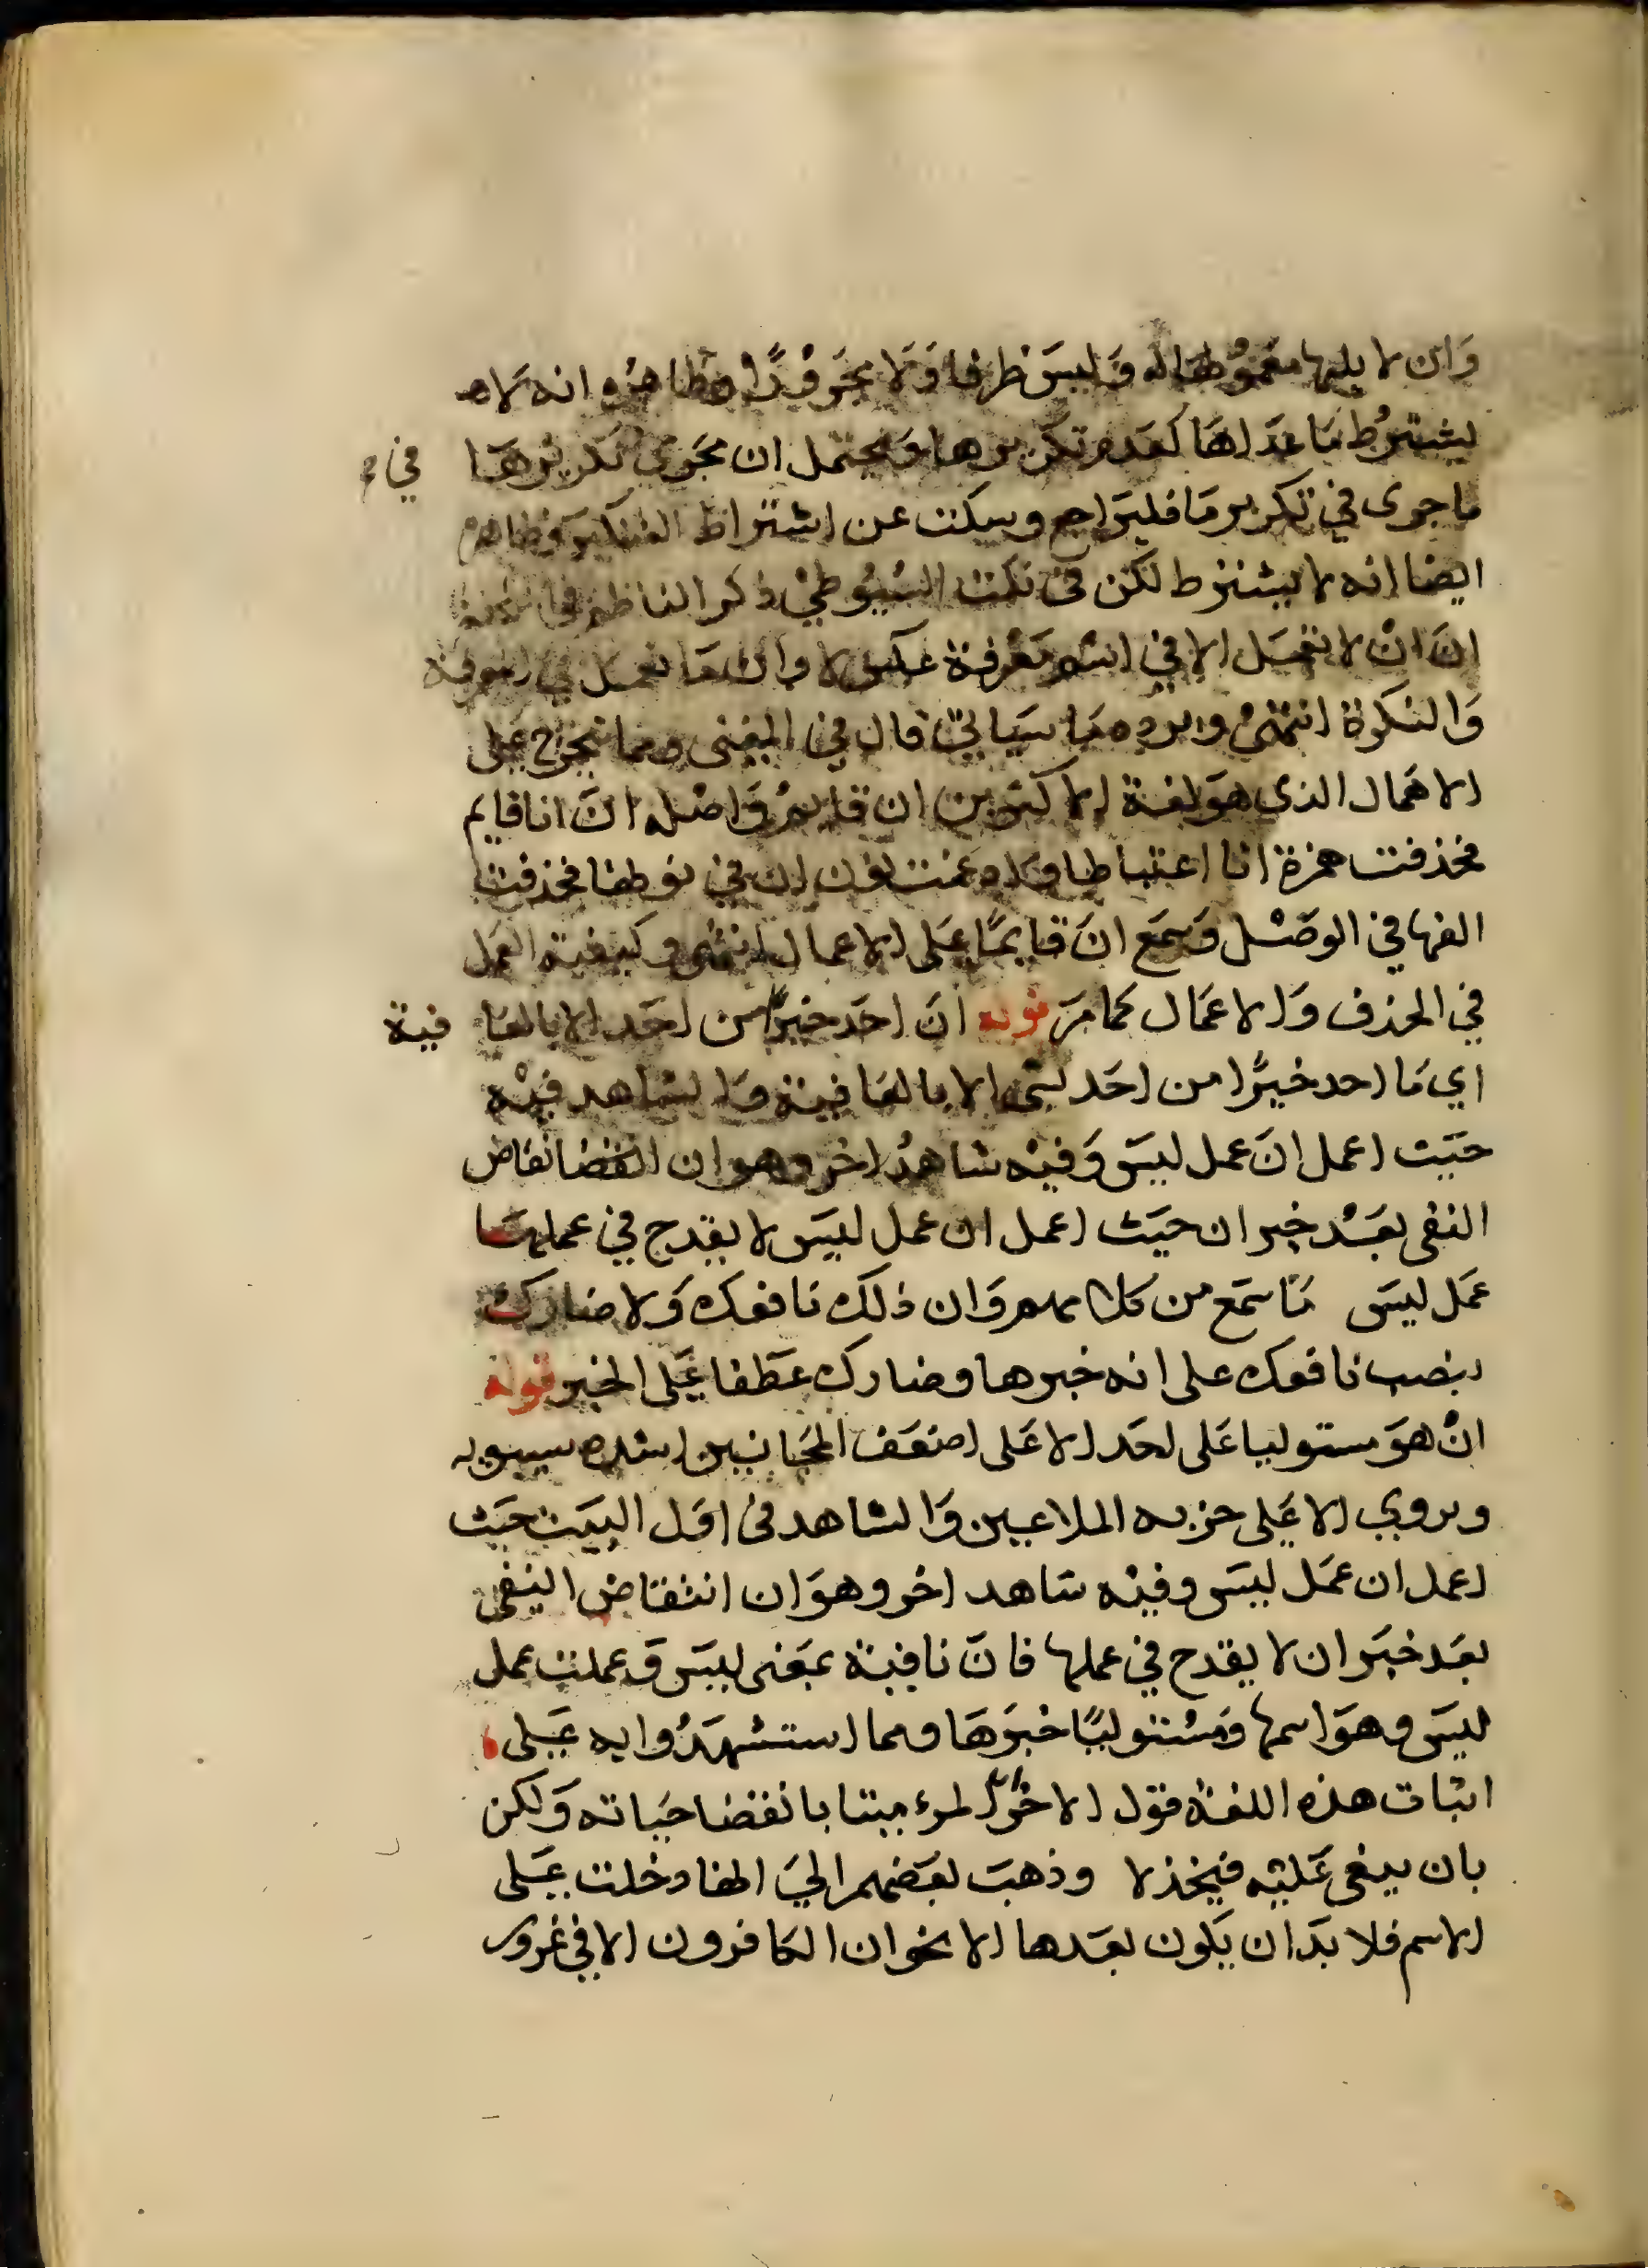 وَان لا يليها معمولها وَليسَ ظرفا وَلا مجرورًا وظاهره انه لا
يشترط ما عداها كعدم تكريرها وَيحتمل ان يجري في تكريرها
ما جرى في تكرير مَا فليراجع وسكت عن اشتراط التنكير وظاهره
ايضا انه لا يشترط لكن في نكت السُيُوطيْ ذكر الناظم في
انَ انْ لا تعمَل الا في اسم مَعْرفة عكس لا وان مَا تعمل في المعرفة
وَالنكرة انتهىْ ويرده مَا سَياتيْ قال في المغنى ومما يتخرج عَلى
الاهمال الذي هوَ لغة الاكثرين ان قايم وَاصْله انَ انا قايم
فحذفت همزة انا اعتباطا وادغمت نون ان في نونها فحذفت
الفها في الوصْل وَسمَع انَ قايمًا عَلى الاعمال انتهى وكيفية العمل
في الحذف وَالاعمَال كمَا مَرَ قوله انَ احَد خيرًا من احَد الا بالعافية
اي مَا احد خيرًا من احَد لشئ الا بالعافية وَالشاهد فيْه
حيَث اعمل انَ عمل ليسَ وَفيْه شاهدُ اخر وهو ان انتقاض
النفى بعَدْ خبر ان حيَث اعمل ان عمل ليسَ لا يقدح في عملها
عَمل ليسَ مَا سمَع من كلامهم وَان ذلك نافعك وَلا ضارك
بنصب نافعك على انه خبرها وضارك عَطفا عَلى الخبر قوله
انْ هوَ مستوليا عَلى احَد الا عَلى اضعَف المجَانين انشده سيبويه
ويروي الا عَلى حزبه الملاعين وَالشاهد فى اوَل البيَت حيَث
اعمل ان عمَل ليسَ وفيْه شاهد اخر وهوَ ان انتقاض النفى
بعَد خبَر ان لا يقدح في عملها فانَ نافية بمعَنى ليسَ وَعملت عمل
ليسَ وهوَ اسمها وَمسْتوليًا خبرَهَا ومما استشهَدُوا به عَلى
اثبات هذه اللغة قول الاخر ان المرء ميتا بانقضا حيَاته وَلكن
بان يبغى عَليْه فيخذلا وذهبَ بعَضهم اليَ انها دخلت عَلى
الاسم فلا بدَ ان يَكون بعَدها الا نحو ان الكافرون الا في غرور